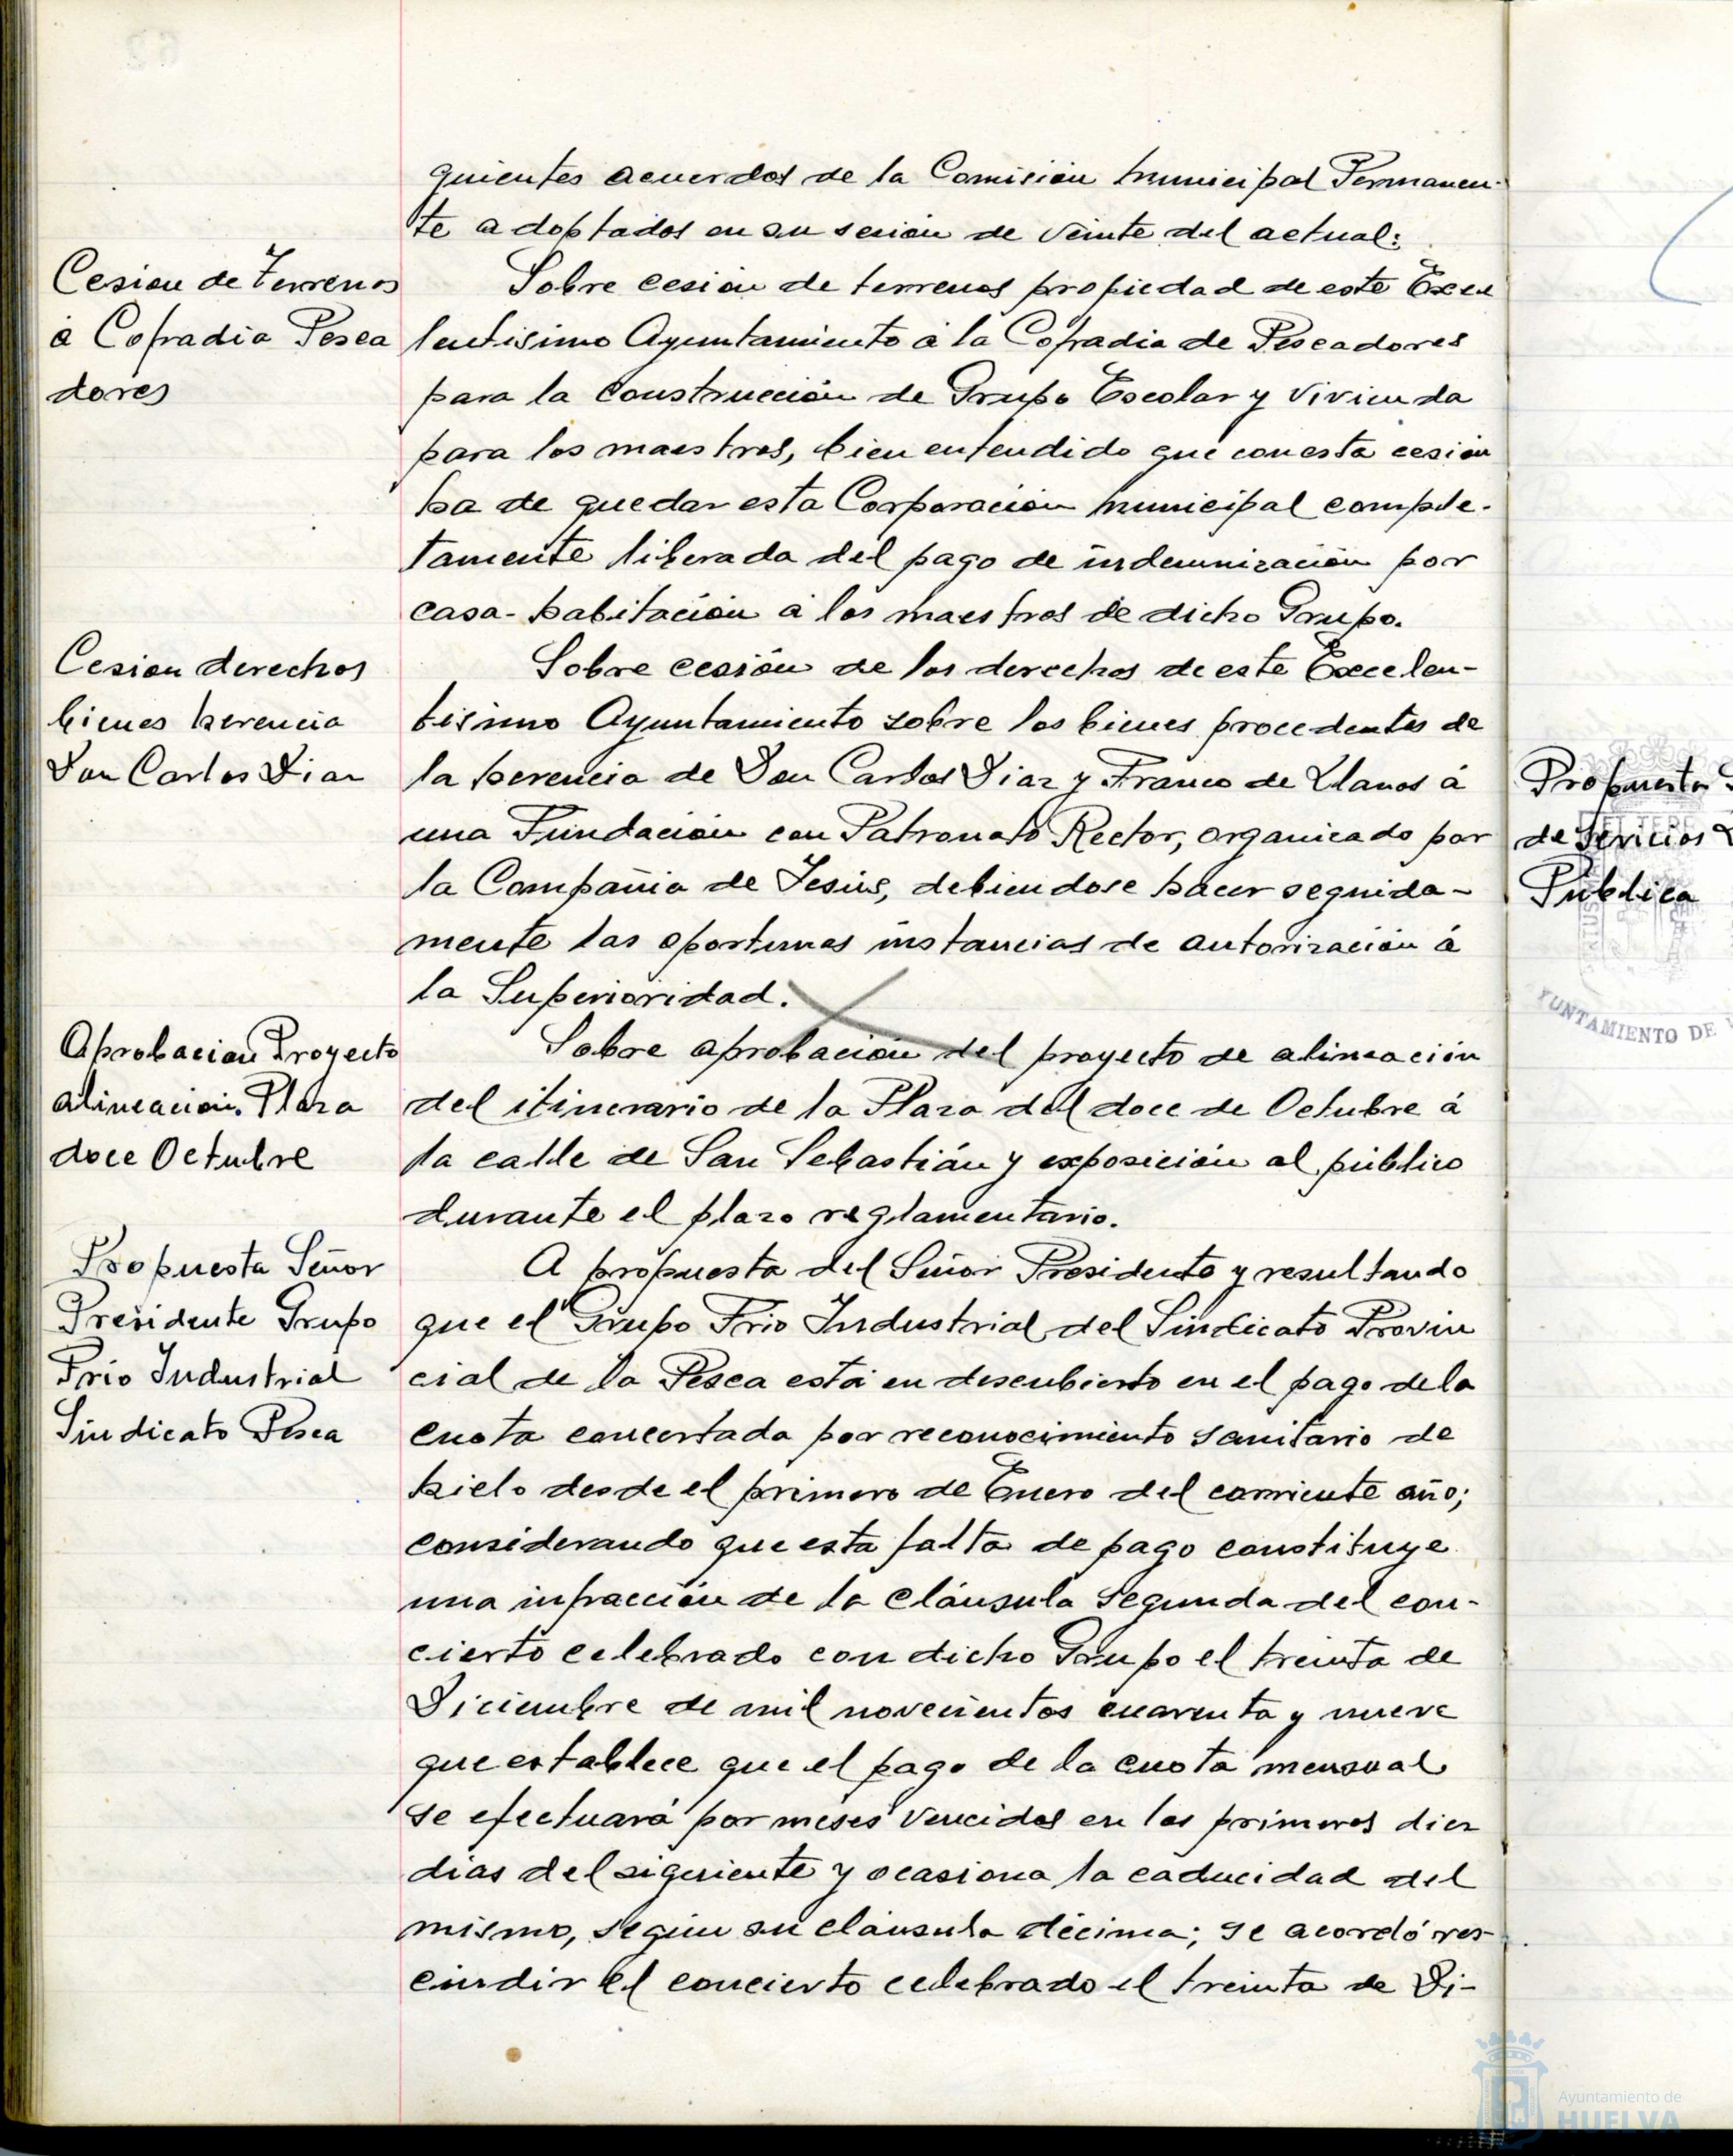 guientes acuerdos de la Comisión municipal Permanen-
te adoptados en su sesión de veinte del actual:
Cesion de Terrenos
á Cofradia Pesca
dores
Sobre cesión de terrenos propiedad de este Exce
lentisimo Ayuntamiento á la Cofradia de Pescadores
para la construcción de Grupo Escolar y vivienda
para los maestros, bien entendido que con esta cesión
ha de quedar esta Corporación municipal comple-
tamente liberada del pago de indemnización por
casa-habitación á los maestros de dicho Grupo.
Cesion derechos
bienes herencia
Don Carlos Diaz
Sobre cesión de los derechos de este Excelen-
tisimo Ayuntamiento sobre los bienes procedentes de
la herencia de Don Carlos Diaz y Franco de Llanos á
una Fundación con Patronato Rector, organizado por
la Compañia de Jesús, debiendose hacer seguida-
mente las oportunas instancias de autorización á
la Superioridad.
Aprobacion Proyecto
alineación Plaza
doce Octubre
Sobre aprobación del proyecto de alineación
del itinerario de la Plaza del doce de Octubre á
la calle de San Sebastián y exposición al público
durante el plazo reglamentario.
Propuesta Señor
Presidente Grupo
Frio Industrial
Sindicato Pesca
A propuesta del Señor Presidente y resultando
que el Grupo Frio Industrial del Sindicato Provin
cial de la Pesca está en descubierto en el pago de la
cuota concertada por reconocimiento sanitario de
hielo desde el primero de Enero del corriente año;
considerando que esta falta de pago constituye
una infracción de la cláusula segunda del con-
cierto celebrado con dicho Grupo el treinta de
Diciembre de mil novecientos cuarenta y nueve
que establece que el pago de la cuota mensual
se efectuará por meses vencidos en los primeros diez
dias del siguiente y ocasiona la caducidad del
mismo, según su cláusula décima; se acordó res-
cindir el concierto celebrado el treinta de Di-
Propuesta
de Servicios
Pública
YUNTAMIENTO DE
Ayuntamiento de
HUELVA